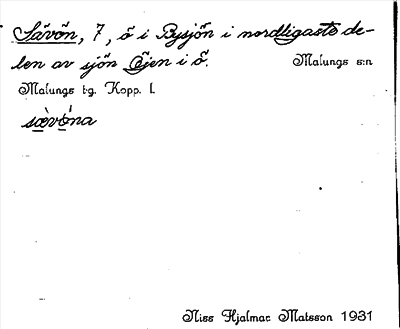 Såvön, 7, ö i Bysjön i nordligaste de-
len av sjön Öjen i ö. Malungs s:n
Malungs t-g. Kopp. l.
sævǿna
Niss Hjalmar Matsson 1931